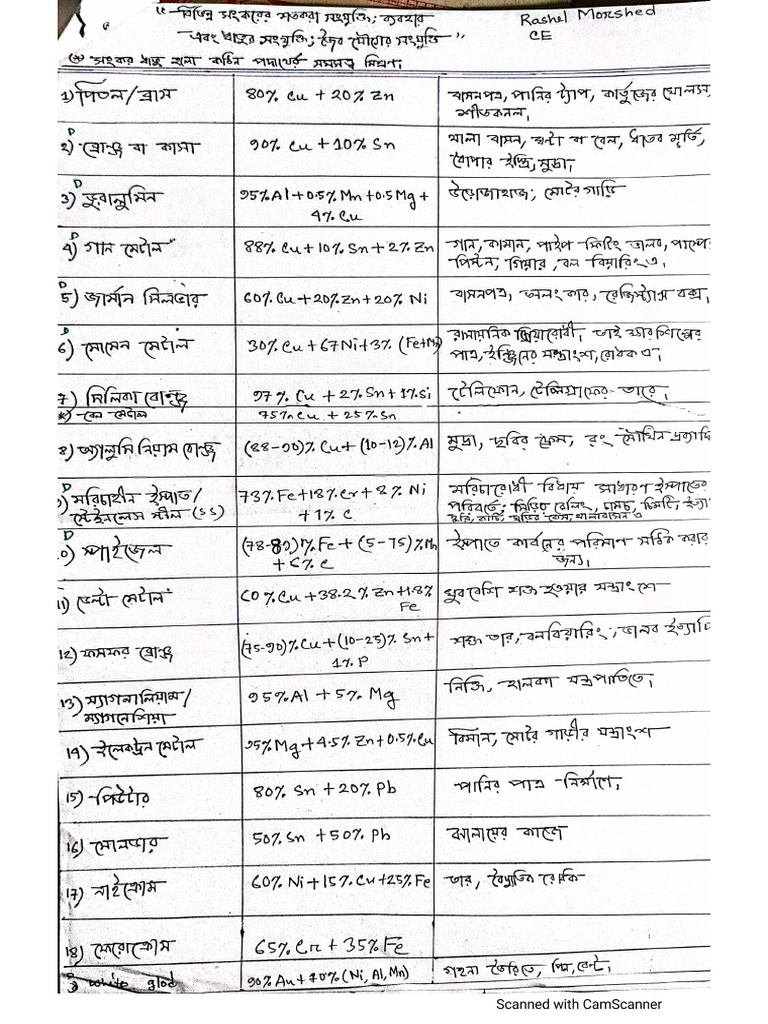 "বিভিন্ন সংকরের শতকরা সংযুক্তি; ব্যবহার
Rashel Morshed
এবং ধাতুর সংযুক্তি; জৈব যৌগের সংযুক্তি"
CE
সংকর ধাতু হলো কঠিন পদার্থের সমসত্ত্ব মিশ্রণ।
1) পিতল/ব্রাস 80% Cu + 20% Zn বাসনপত্র, পানির ট্যাপ, কার্তুজের খোলস,
শীতকনল।
D
2) ব্রোঞ্জ বা কাসা 90% Cu + 10% Sn থালা বাসন, ঘন্টা বা বেল, ধাতব মূর্তি,
ধোপার ইস্ত্রি, মুদ্রা।
D
3) ডুরালুমিন 95% Al + 0.5% Mn + 0.5 Mg + উড়োজাহাজ; মোটর গাড়ি
4% Cu
D
4) গান মেটাল 88% Cu + 10% Sn + 2% Zn গান, কামান, পাইপ ফিটিং ভালব, পাম্পের
পিস্টন, গিয়ার, বল বিয়ারিং এ।
D
5) জার্মান সিলভার 60% Cu + 20% Zn + 20% Ni বাসনপত্র, অলংকার, রেজিস্ট্যান্স বক্স।
D
6) মোনেল মেটাল 30% Cu + 67 Ni + 3% (Fe+Mn) রাসায়নিক তাই
পাত্র, ইঞ্জিনের যন্ত্রাংশ,
7) সিলিকা ব্রোঞ্জ 97% Cu + 2% Sn + 1% Si টেলিফোন, টেলিগ্রাফের তারে।
*) বেল মেটাল 75% Cu + 25% Sn
8) অ্যালুমিনিয়াম ব্রোঞ্জ (88-90)% Cu + (10-12)% Al মুদ্রা, ছবির ফ্রেম, রং
D
9) মরিচাহীন ইস্পাত/ 73% Fe + 18% Cr + 8% Ni মরিচারোধী বিধায় সাধারণ ইস্পাতের
স্টেইনলেস স্টীল (SS) + 1% C পরিবর্তে; সিঁড়ির রেলিং, চামচ,
D
10) স্পাইজেল (78-80)% Fe + (5-75)% Mn ইস্পাতে কার্বনের পরিমাণ সঠিক করার
+ 6% C জন্য।
11) ডেল্টা মেটাল 60% Cu + 38.2% Zn + 1.8% খুব বেশি শক্ত হওয়ার যন্ত্রাংশে
Fe
12) ফসফর ব্রোঞ্জ (75-90)% Cu + (10-25)% Sn + শক্ত তার, বল বিয়ারিং, ভালব ইত্যাদি
1% P
13) ম্যাগনালিয়াম/ 95% Al + 5% Mg নিক্তি, হালকা যন্ত্রপাতিতে।
ম্যাগনেশিয়া
14) ইলেকট্রন মেটাল 95% Mg + 4.5% Zn + 0.5% Cu বিমান, মোটর গাড়ীর যন্ত্রাংশে
15) পিউটার 80% Sn + 20% Pb পানির পাত্র নির্মাণে।
16) সোলডার 50% Sn + 50% Pb ঝালায়ের কাজে
17) নাইক্রোম 60% Ni + 15% Cu + 25% Fe তার, বৈদ্যুতিক
18) ফেরোক্রোম 65% Cr + 35% Fe
white glod 90% Au + 10% (Ni, Al, Mn) গহনা তৈরিতে, পিন,
Scanned with CamScanner